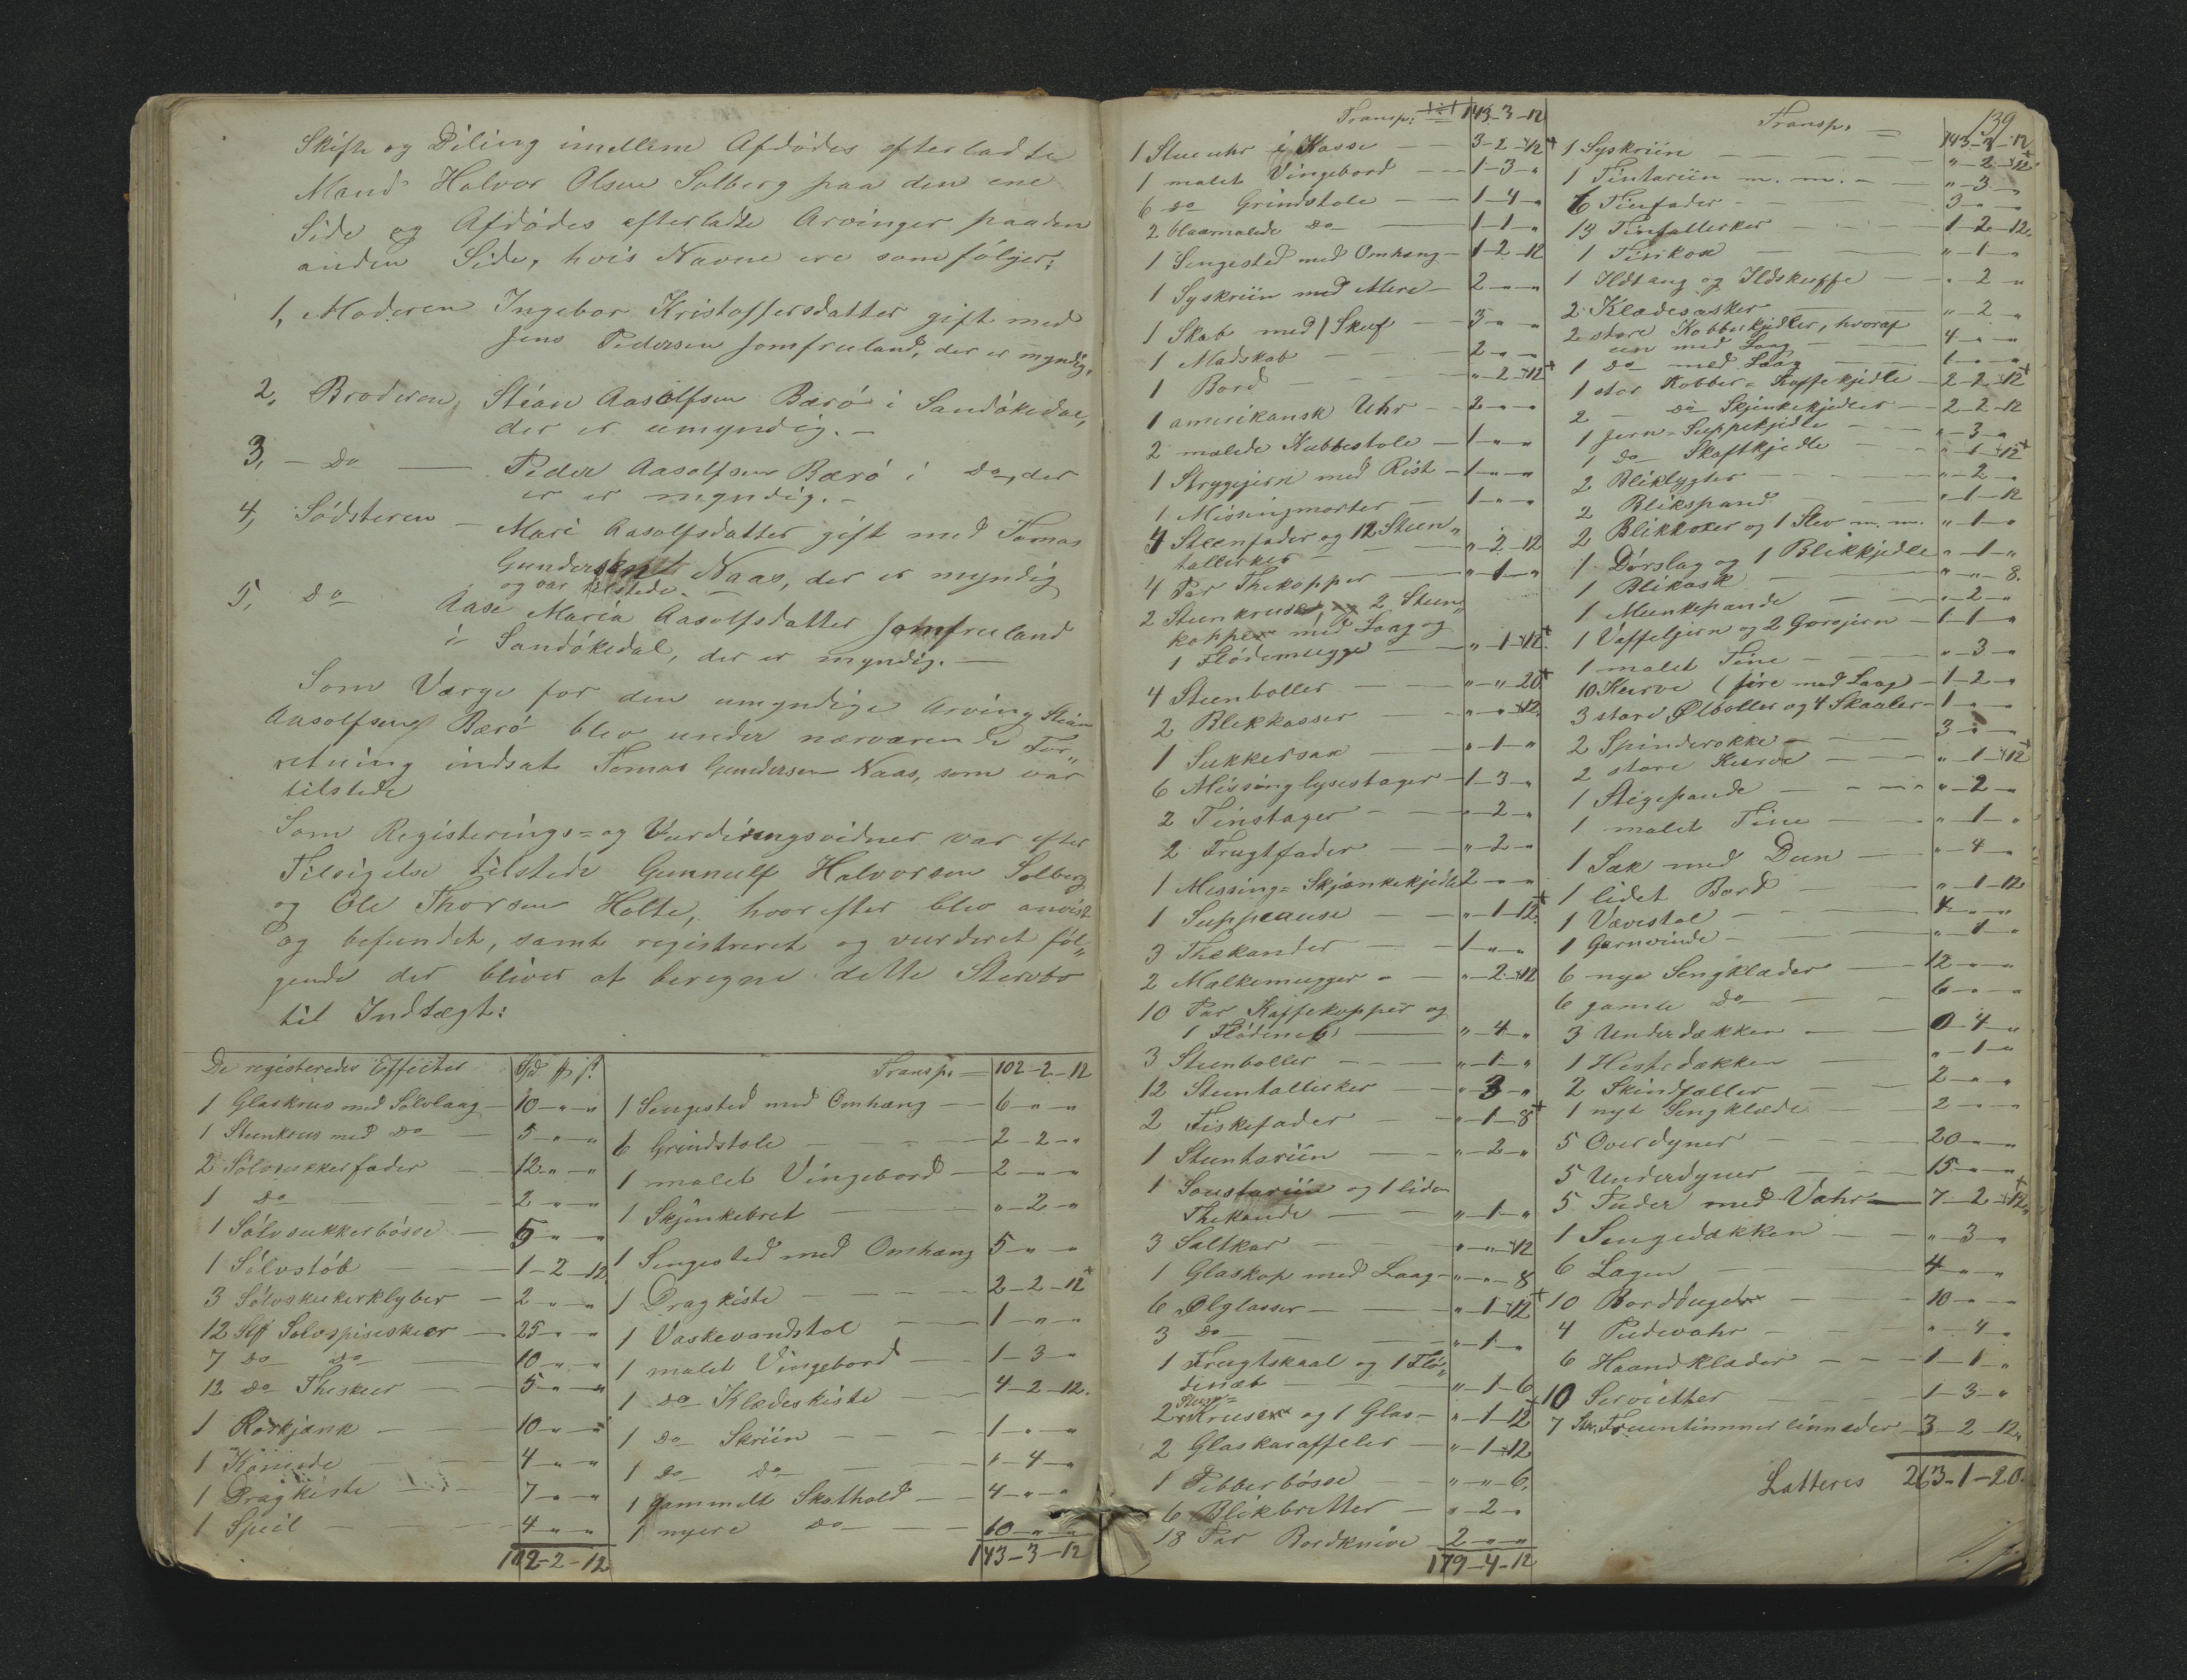 Skifte og Diling imellem Afdödes efterladte
Mand Halvor Olsen Solberg paa den ene
Side og Afdödes efterladte Arvinger paa den
anden Side, hvis Navne ere som fölger:
1, Moderen Ingebor Kristoffersdatter gift med
Jens Pedersen Jomfruland, der er myndig.
2, Broderen, Stian Aasolfsen Bærö i Sandökedal,
der er umyndig. –
3, – Do — Peder Aasolfsen Bærö i Do, der
er er myndig. –
4, Södsteren – Mari Aasolfsdatter gift med Tomas
Gundersen Naas, der er myndig
og var tilstede. –
5, Do Aase Maria Aasolfsdatter Jomfruland
i Sandökedal, der er myndig. —
Som Værge for den umyndige Arving Stian
Aasolfsen Bærö blev under nærværende For„
retning indsat Tomas Gundersen Naas, som var
tilstede
Som Registerings= og Vurderingsvidner var efter
Tilsigelse tilstede Gunnulf Halvorsen Solberg
og Ole Thorsen Holte, hvorefter blev anvist
og befundet, samt registreret og vurderet föl„
gende der bliver at beregne dette Stervbo
til Indtægt:
De registeredes Effecter
1 Glaskrus med Sölvlaag – 10 – „ – „
1 Steenkrus med Do – 5 – „ – „
2 Sölvsukkerfader – 12 – „ – „
1 Do – 2 – „ – „
1 Sölvsukkerbösse – 5 – „ – „
1 Sölvstöb – 1 – 2 – 12
3 Sölvsukkerklyber – 2 – „ – „
12 Sölvspiseskeer – 25 – „ – „
7 Do Do – 10 – „ – „
12 Do Theskeer – 5 – „ – „
1 – 10 – „ – „
1 Komode – 4 – „ – „
1 Dragkiste – 7 – „ – „
1 Speil – 4 – „ – „
102 – 2 – 12
Transp. – 102 – 2 – 12
1 Sengested med Omhæng – 6 – „ – „
6 Grindstole – 2 – 2 – „
1 malet Vingebord – 2 – „ – „
1 Skjenkebret – „ – 2 – „
1 Sengested med Omhæng 5 – „ – „
1 Dragkiste – 2 – 2 – 12
1 Vaskevandstol – 1 – „ – „
1 malet Vingebord – 1 – 3 – „
1 Do Klædeskiste – 4 – 2 – 12.
1 Do Skriin – 1 – „ – „
1 Do Do – „ – 4 – „
1 gammelt Skathold – 4 – „ – „
1 nyere Do – 10 – „ – „
143 – 3 – 12
Transp: 143 – 3 – 12
1 Stueuhr i Kasse – 3 – 2 – 12
1 malet Vingebord – 1 – 3 – „
6 Do Grindstole – 1 – 4 – „
2 blaamalede Do – 1 – 1 – „
1 Sengested med Omhæng – 1 – 2 – 12
1 Syskriin med Mere – 2 – „ – „
1 Skab med 1 Skuf – 3 – „ – „
1 Madskab – 2 – „ – „
1 Bord – „ – 2 – 12
1 amerikansk Uhr – 2 – „ – „
2 malede Kubbestole – 1 – „ – „
1 Strygejern med Rist – 1 – „ – „
1 Missingmorter – 1 – „ – „
4 Steenfader og 12 Steen„
tallerker – „ – 2 – 12
4 Par Thekopper – „ – 1 – „
2 Steenkruse, 2 Steen„
kopper med Laag og
1 Flödemugge – „ – 1 – 12
4 Steenboller – „ – „ – 20
2 Blekkasser – „ – „ – 12
1 Sukkersax – „ – 1 – „
6 Missinglysestager – 1 – 3 – „
2 Tinstager – „ – 2 – „
2 Frugtfader – „ – 2 – „
1 Messing= Skjænkekjedel 2 – „ – „
1 Suppeause – „ – 1 – 12
3 Thekander – 1 – „ – „
2 Mælkemugger – „ – 2 – 12
10 Par Kaffekopper og
1 – „ – 4 – „
3 Steenboller – „ – 1 – „
12 Steentallerker – „ – 3 – „
2 Fiskefader – „ – 1 – 8
1 Steenteriin – „ – 2 – „
1 Sousteriin og 1 liden
Thekande – „ – 1 – „
3 Saltkar – „ – „ – 12
1 Glaskop med Laag – „ – „ – 8
6 Ølglasser – „ – 1 – 12
3 Do – „ – 1 – „
1 Frugtskaal og 1 Flö„
denæb – „ – 1 – 6
2 Steen=
Kruse og 1 Glas – „ – 1 – 12
2 Glaskaraffeler – „ – 1 – 12
1 Pebberbösse – „ – „ – 6.
6 Blikbretter – „ – 2 – „
18 Par Bordknive 2 – „ – „
179 – 4 – 12
139
Transp. – 143 – 3 – 12
1 Syskriin – „ – 2 – 12
1 Tinteriin m. m. – „ – 3 – „
6 Tinfader – 3 – „ – „
13 Tintallerker – 1 – 2 – 12.
1 – „ – 1 – „
1 Ildtang og Ildskuffe – „ – 2 – „
2 Klædesæsker – „ – 2 – „
2 store Kobberkjedler, hvoraf
een med Laag – 4 – „ – „
1 Do med Laag – 1 – „ – „
1 stor Kobber= Kaffekjedle – 2 – 2 – 12
2 – Do Skjenkekjedler – 2 – 2 – 12
1 Jern= Suppekjedle – „ – 3 – „
1 Do Skaftkjedle – „ – 1 – 12
2 Bliklygter – „ – 2 – „
2 Blikspand – „ – 1 – 12
2 Blikkoxer og 1 Slev m. m. „ – 1 – „
1 Dörslag og 1 Blikkjedle „ – 1 – „
1 Blikask – „ – „ – 8.
1 Munkepande – „ – 2 – „
1 Vaffeljern og 2 Gorojern – 1 – 1 – „
1 malet Tine – „ – 3 – „
10 Kurve (fire med Laag) – 1 – 2 – „
3 store Ølboller og 4 Skaaler – 1 – „ – „
2 Spinderokke – 3 – „ – „
2 store Kurve – „ – 1 – 12
1 Stegepande – „ – 2 – „
1 malet Tine – „ – 1 – „
1 Sæk med Duun – „ – 4 – „
1 lidet Bord – „ – 1 – 12
1 Vævestol – 4 – „ – „
1 Garnvinde – „ – 1 – „
6 nye Sengklæder – 12 – „ – „
6 gamle Do – 6 – „ – „
3 Underdækken – 0 – 4 – „
1 Hestedækken – „ – 1 – „
2 Skindfæller – 2 – „ – „
1 nyt Sengklæde – 2 – „ – „
5 Overdyner – 20 – „ – „
5 Underdyner – 15 – „ – „
5 Puder med Vahr – 7 – 2 – 12
1 Sengedækken – „ – 3 – „
6 Lagen – 4 – „ – „
10 Bordduge – 10 – „ – „
4 Pudevahr – „ – 4 – „
6 Haandklæder – 1 – 1 – „
10 Servietter – 1 – 3 – „
7 Fruentimmer linneder – 3 – 2 – 12.
Latteris 263 – 1 – 20.